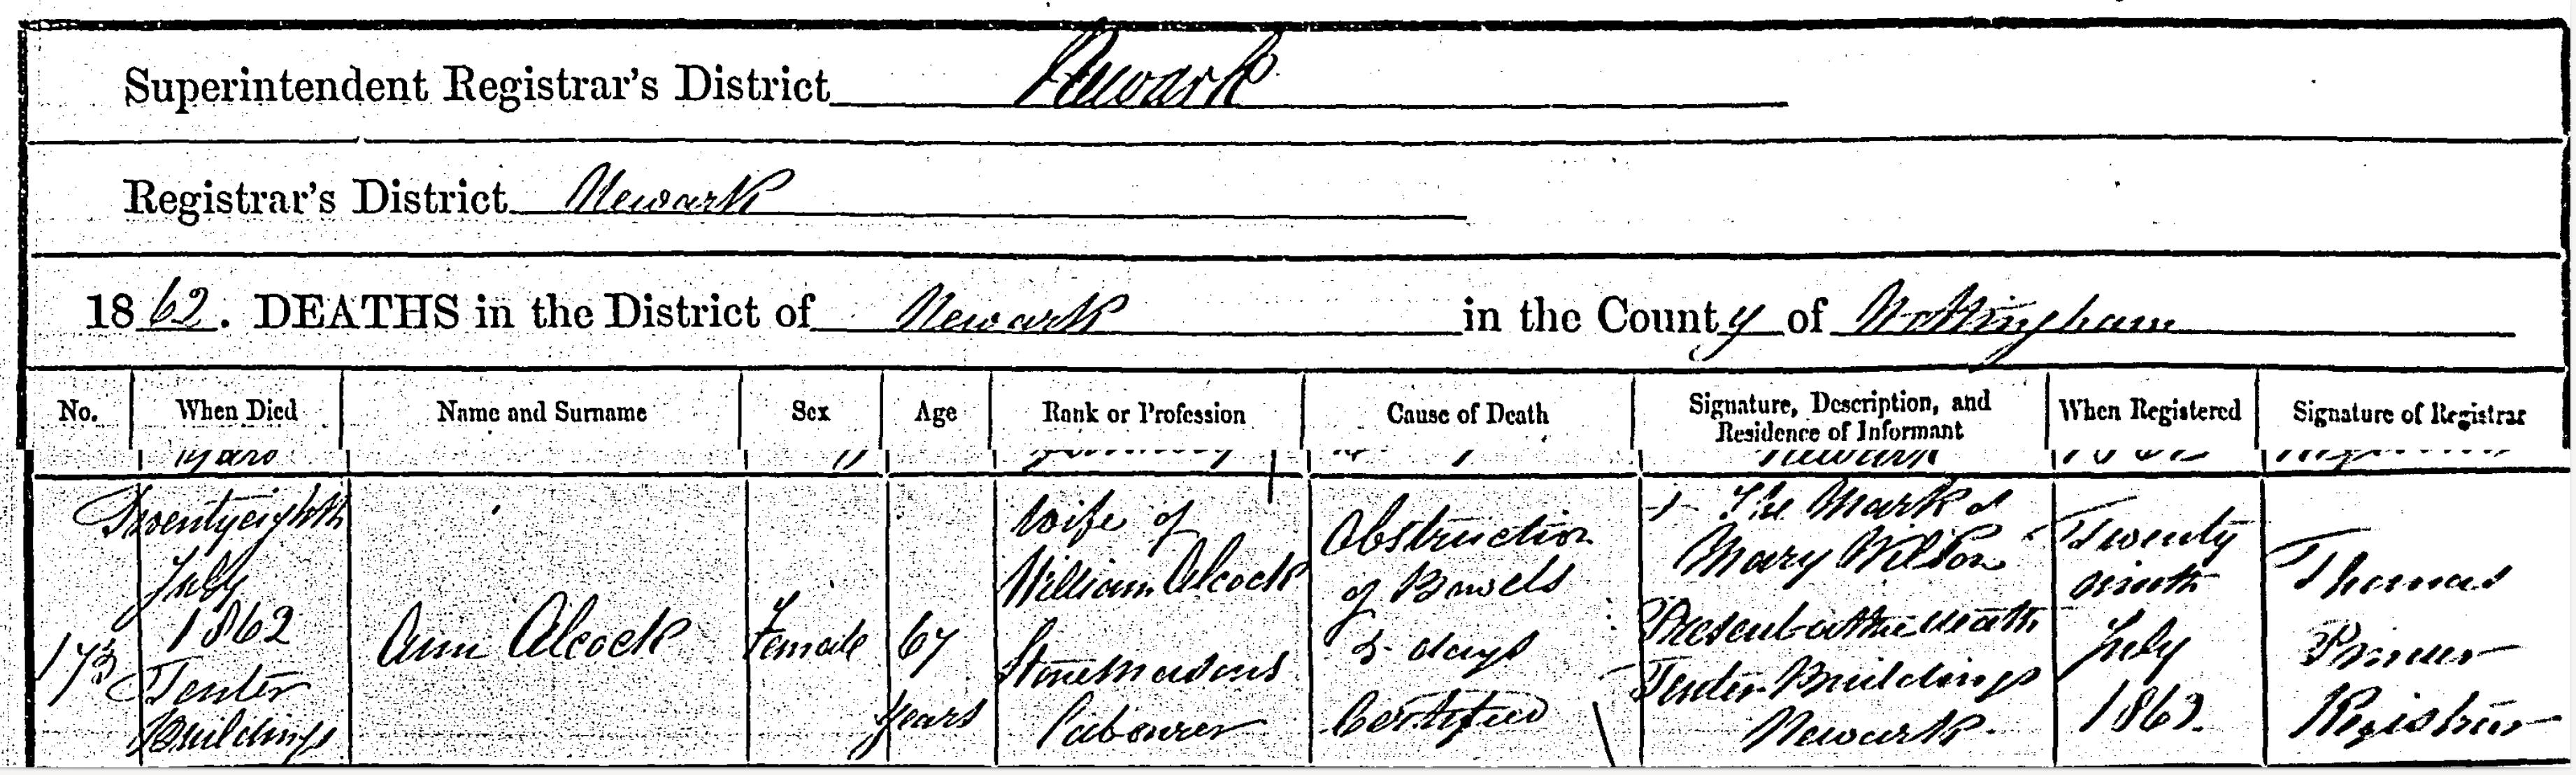 Superintendent Registrar's District Newark
Registrar's District Newark
1862. DEATHS in the District of Newark in the County of Nottingham
No. When Died Name and Surname Sex Age Rank or Profession Cause of Death Signature, Description, and Residence of Informant When Registered Signature of Registrar
173
Twentyeighth
July
1862
Tenter
Buildings
Ann Alcock
Female
67
years
Wife of
William Alcock
Stonemasons
Labourer
Obstruction
of Bowels
days
Certified
The Mark of
Mary Wilson
Present at the death
Tenter Buildings
Newark
Twenty
ninth
July
1862.
Thomas
Registrar